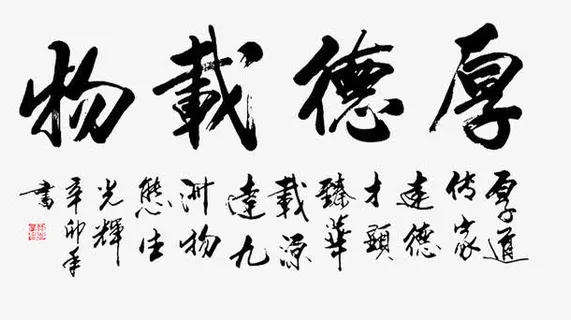 厚德載物
厚道
傳家
遠德
才顯
臻華
載源
達九
洲物
態生
光輝
辛卯年
書